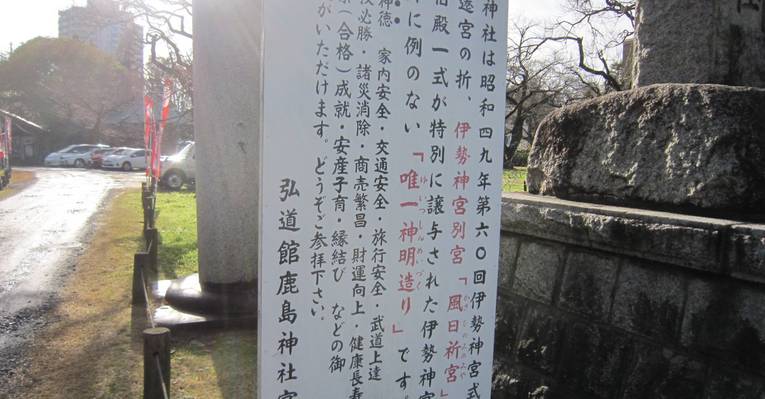 神社は昭和四九年第六〇回伊勢神宮式
遷宮の折、伊勢神宮別宮「風日祈宮」
殿一式が特別に譲与された伊勢神宮
に例のない「唯一神明造り」です
神徳 家内安全・交通安全・旅行安全・武道上達
必勝・諸災消除・商売繁昌・財運向上・健康長寿
(合格)成就・安産子育・縁結び などの御
がいただけます。どうぞご参拝下さい。
弘道館鹿島神社宮